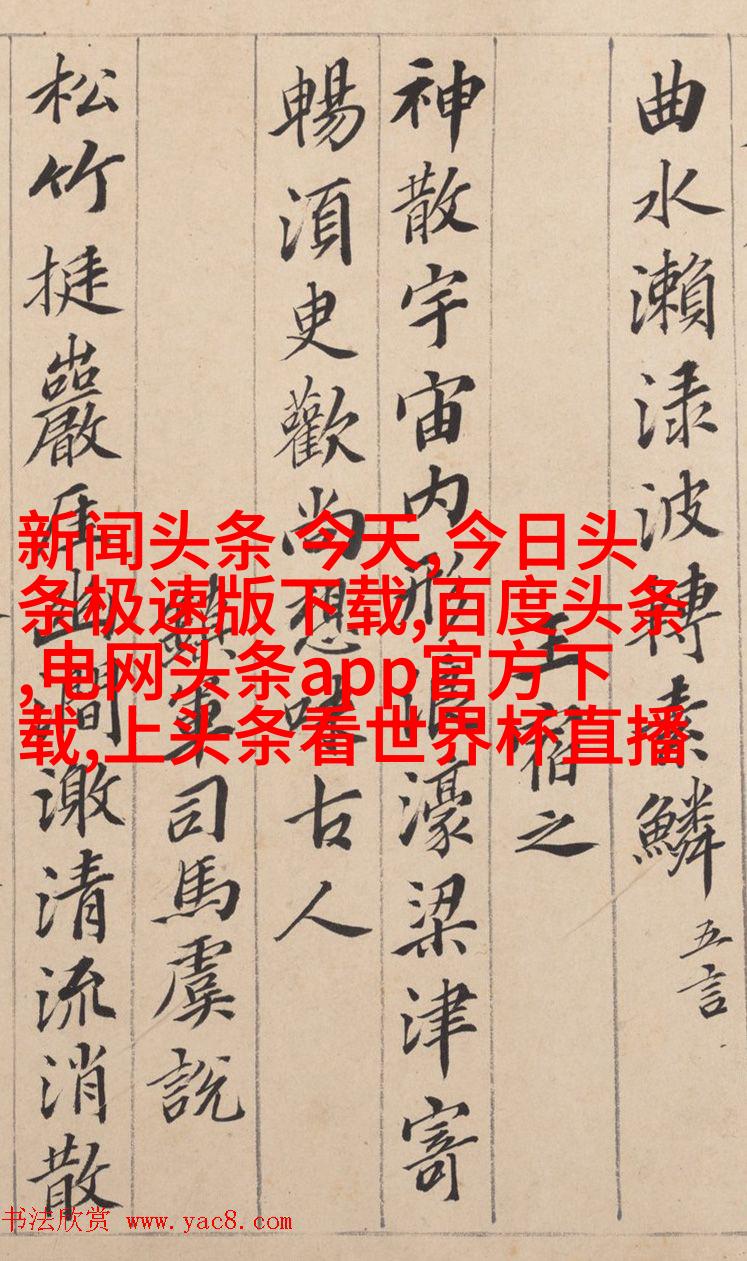 曲水瀨淥波轉素鱗 五言
王宿之
神散宇宙內形浪濠梁津寄
暢須臾歡尚想味古人
鎮軍司馬虞說
松竹挺巖崖幽澗激清流消散
新闻头条 今天,今日头
条极速版下载,百度头条
,电网头条app官方下
载,上头条看世界杯直播
书法欣赏 www.yac8.com